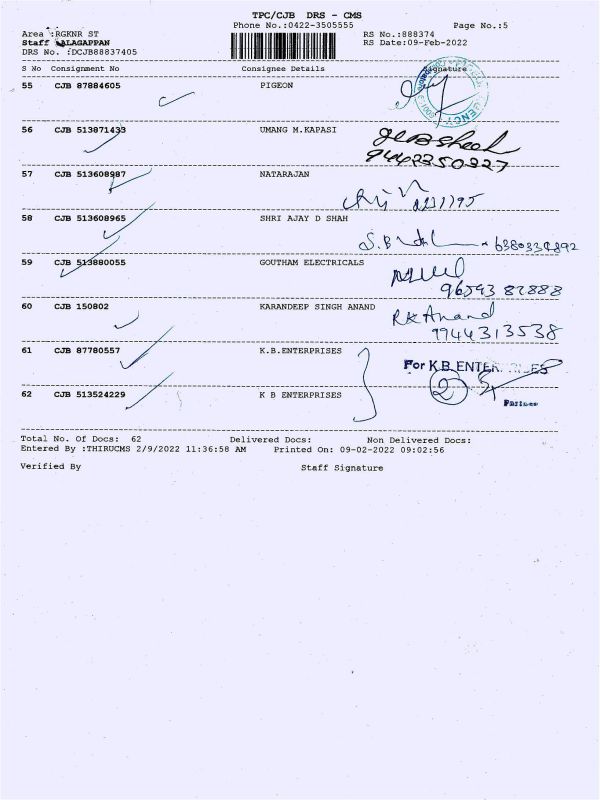 TPC/CJB DRS - CMS
Phone No.:0422-3505555 Page No.:5
Area :RGKNR ST RS No.:888374
Staff :ALAGAPPAN RS Date:09-Feb-2022
DRS No. :DCJB88837405
S No Consignment No Consignee Details Signature
55 CJB 87884605 PIGEON
56 CJB 513871433 UMANG M.KAPASI
9442350227
57 CJB 513608987 NATARAJAN
58 CJB 513608965 SHRI AJAY D SHAH
59 CJB 513880055 GOUTHAM ELECTRICALS
9659387888
60 CJB 150802 KARANDEEP SINGH ANAND
RK Anand
9944313538
61 CJB 87780557 K.B.ENTERPRISES
For K.B. ENTERPRISES
2
62 CJB 513524229 K B ENTERPRISES
Partner
Total No. Of Docs: 62 Delivered Docs: Non Delivered Docs:
Entered By :THIRUCMS 2/9/2022 11:36:58 AM Printed On: 09-02-2022 09:02:56
Verified By Staff Signature